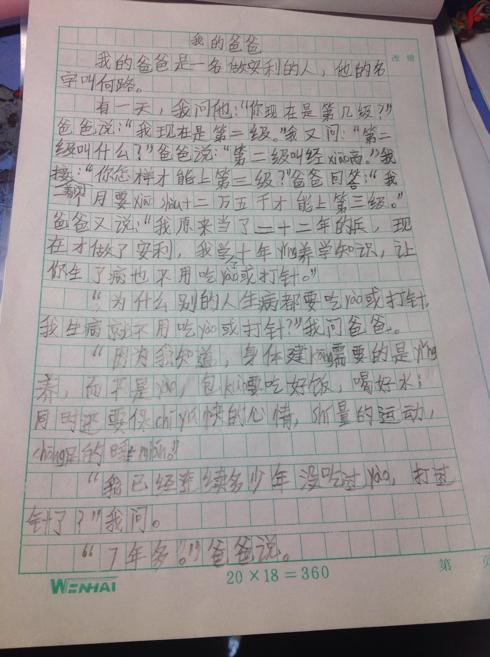 我的爸爸
我的爸爸是一名做安利的人，他的名
字叫何路。
有一天，我问他：“你现在是第几级？”
爸爸说：“我现在是第二级。”我又问：“第二
级叫什么？”爸爸说：“第二级叫经xiāo商。”我
接：“你怎样才能上第三级？”爸爸回答：“我
每个月要xiāo shòu十二万五千才能上第三级。”
爸爸又说：“我原来当了二十二年的兵，现
在才做了安利，我学了十年yíng养学知识，让
你生了病也不用吃yào或打针。”
“为什么别的人生病都要吃yào或打针，
我生病就不用吃yào或打针？”我问爸爸。
“因为我知道，身体建kāng需要的是yíng
养，而不是yào，包kuò要吃好饭，喝好水；
同时还要保chí愉快的心情，的运动，
chōng足的睡mián。”
“我已经连续多少年没吃过yào，打过
针了？”我问。
“7年多。”爸爸说。
WENHAI
20×18=360
第 页